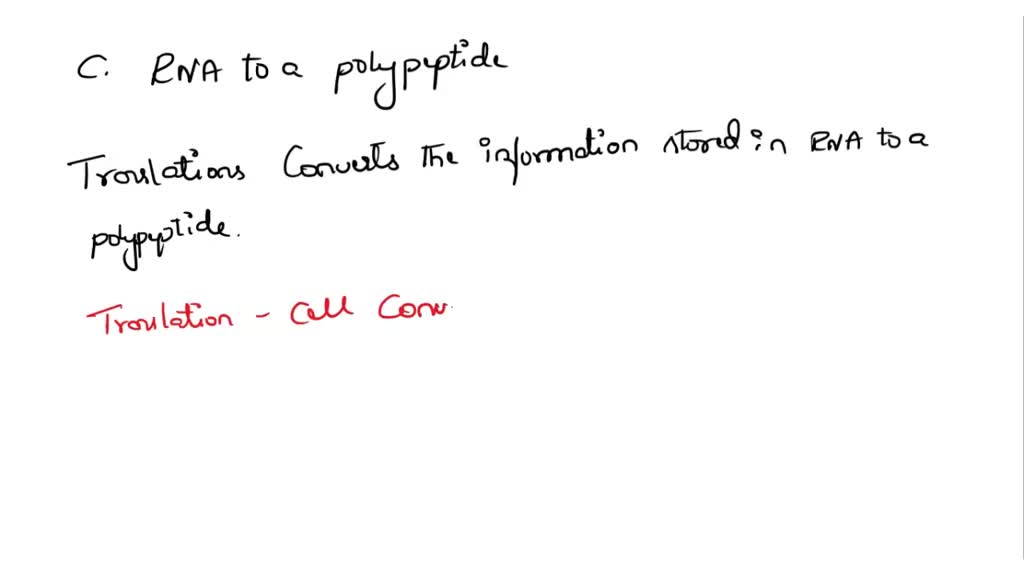 C. RNA to a polypeptide
Translations Converts the information stored in RNA to a
polypeptide.
Translation - Cell Conv